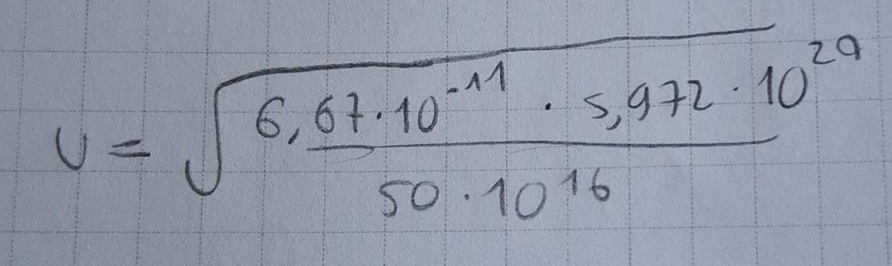 v = √(6,67·10^-11 · 5,972·10^29 / 50·10^16)